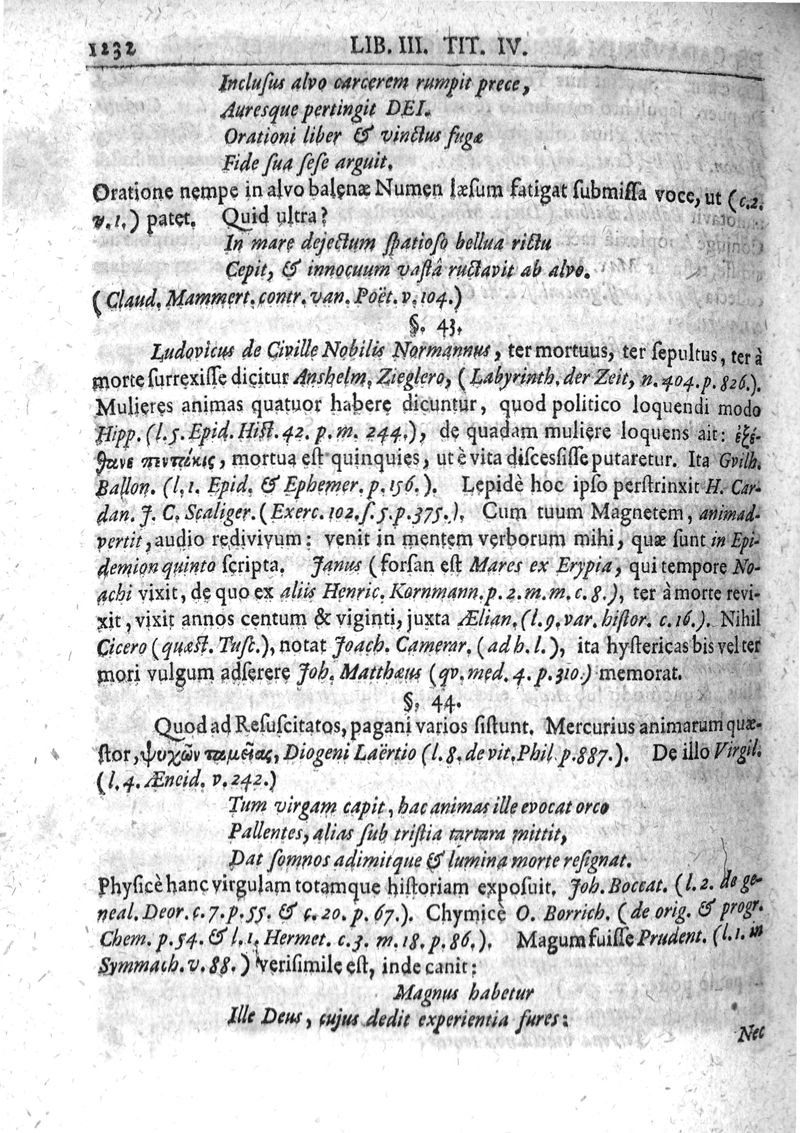 1232 LIB. III. TIT. IV.
Inclusus alvo carcerem rumpit prece,
Auresque pertingit DEI.
Orationi liber & vinctus fugæ
Fide sua sese arguit.
Oratione nempe in alvo balenæ Numen læsum fatigat submissa voce, ut (c.2.
v.1.) patet. Quid ultra?
In mare dejectum spatioso bellua rictu
Cepit, & innocuum vastâ ructavit ab alvo.
(Claud. Mammert. contr. van. Poët. v. 104.)
§. 43.
Ludovicus de Civille Nobilis Normannus, ter mortuus, ter sepultus, ter à
morte surrexisse dicitur Anshelm. Zieglero, (Labyrinth. der Zeit, n. 404. p. 826.).
Mulieres animas quatuor habere dicuntur, quod politico loquendi modo
Hipp. (l. 5. Epid. Hist. 42. p. m. 244.), de quadam muliere loquens ait: ἐξέ-
θανε πεντάκις, mortua est quinquies, ut è vita discessisse putaretur. Ita Gvilh.
Ballon. (l. 1. Epid. & Ephemer. p. 156.). Lepidè hoc ipso perstrinxit H. Car-
dan. J. C. Scaliger. (Exerc. 102. s. 5. p. 375.). Cum tuum Magnetem, animad-
vertit, audio redivivum: venit in mentem verborum mihi, quæ sunt in Epi-
demion quinto scripta. Janus (forsan est Mares ex Erypia, qui tempore No-
achi vixit, de quo ex aliis Henric. Kornmann. p. 2. m. m. c. 8.), ter à morte revi-
xit, vixit annos centum & viginti, juxta Ælian. (l. 9. var. histor. c. 16.). Nihil
Cicero (quæst. Tusc.), notat Joach. Camerar. (ad h. l.), ita hystericas bis vel ter
mori vulgum adserere Joh. Matthæus (qv. med. 4. p. 310.) memorat.
§. 44.
Quod ad Resuscitatos, pagani varios sistunt. Mercurius animarum quæ-
stor, ψυχῶν ταμείας, Diogeni Laërtio (l. 8. de vit. Phil p. 887.). De illo Virgil.
(l. 4. Æneid. v. 242.)
Tum virgam capit, hac animas ille evocat orco
Pallentes, alias sub tristia tartara mittit,
Dat somnos adimitque & lumina morte resignat.
Physicè hanc virgulam totamque historiam exposuit. Joh. Boccat. (l. 2. de ge-
neal. Deor. c. 7. p. 55. & c. 20. p. 67.). Chymicè O. Borrich. (de orig. & progr.
Chem. p. 54. & l. 1. Hermet. c. 3. m. 18. p. 86.). Magum fuisse Prudent. (l. 1. in
Symmach. v. 88.) verisimile est, inde canit:
Magnus habetur
Ille Deus, cujus dedit experientia fures:
Nec